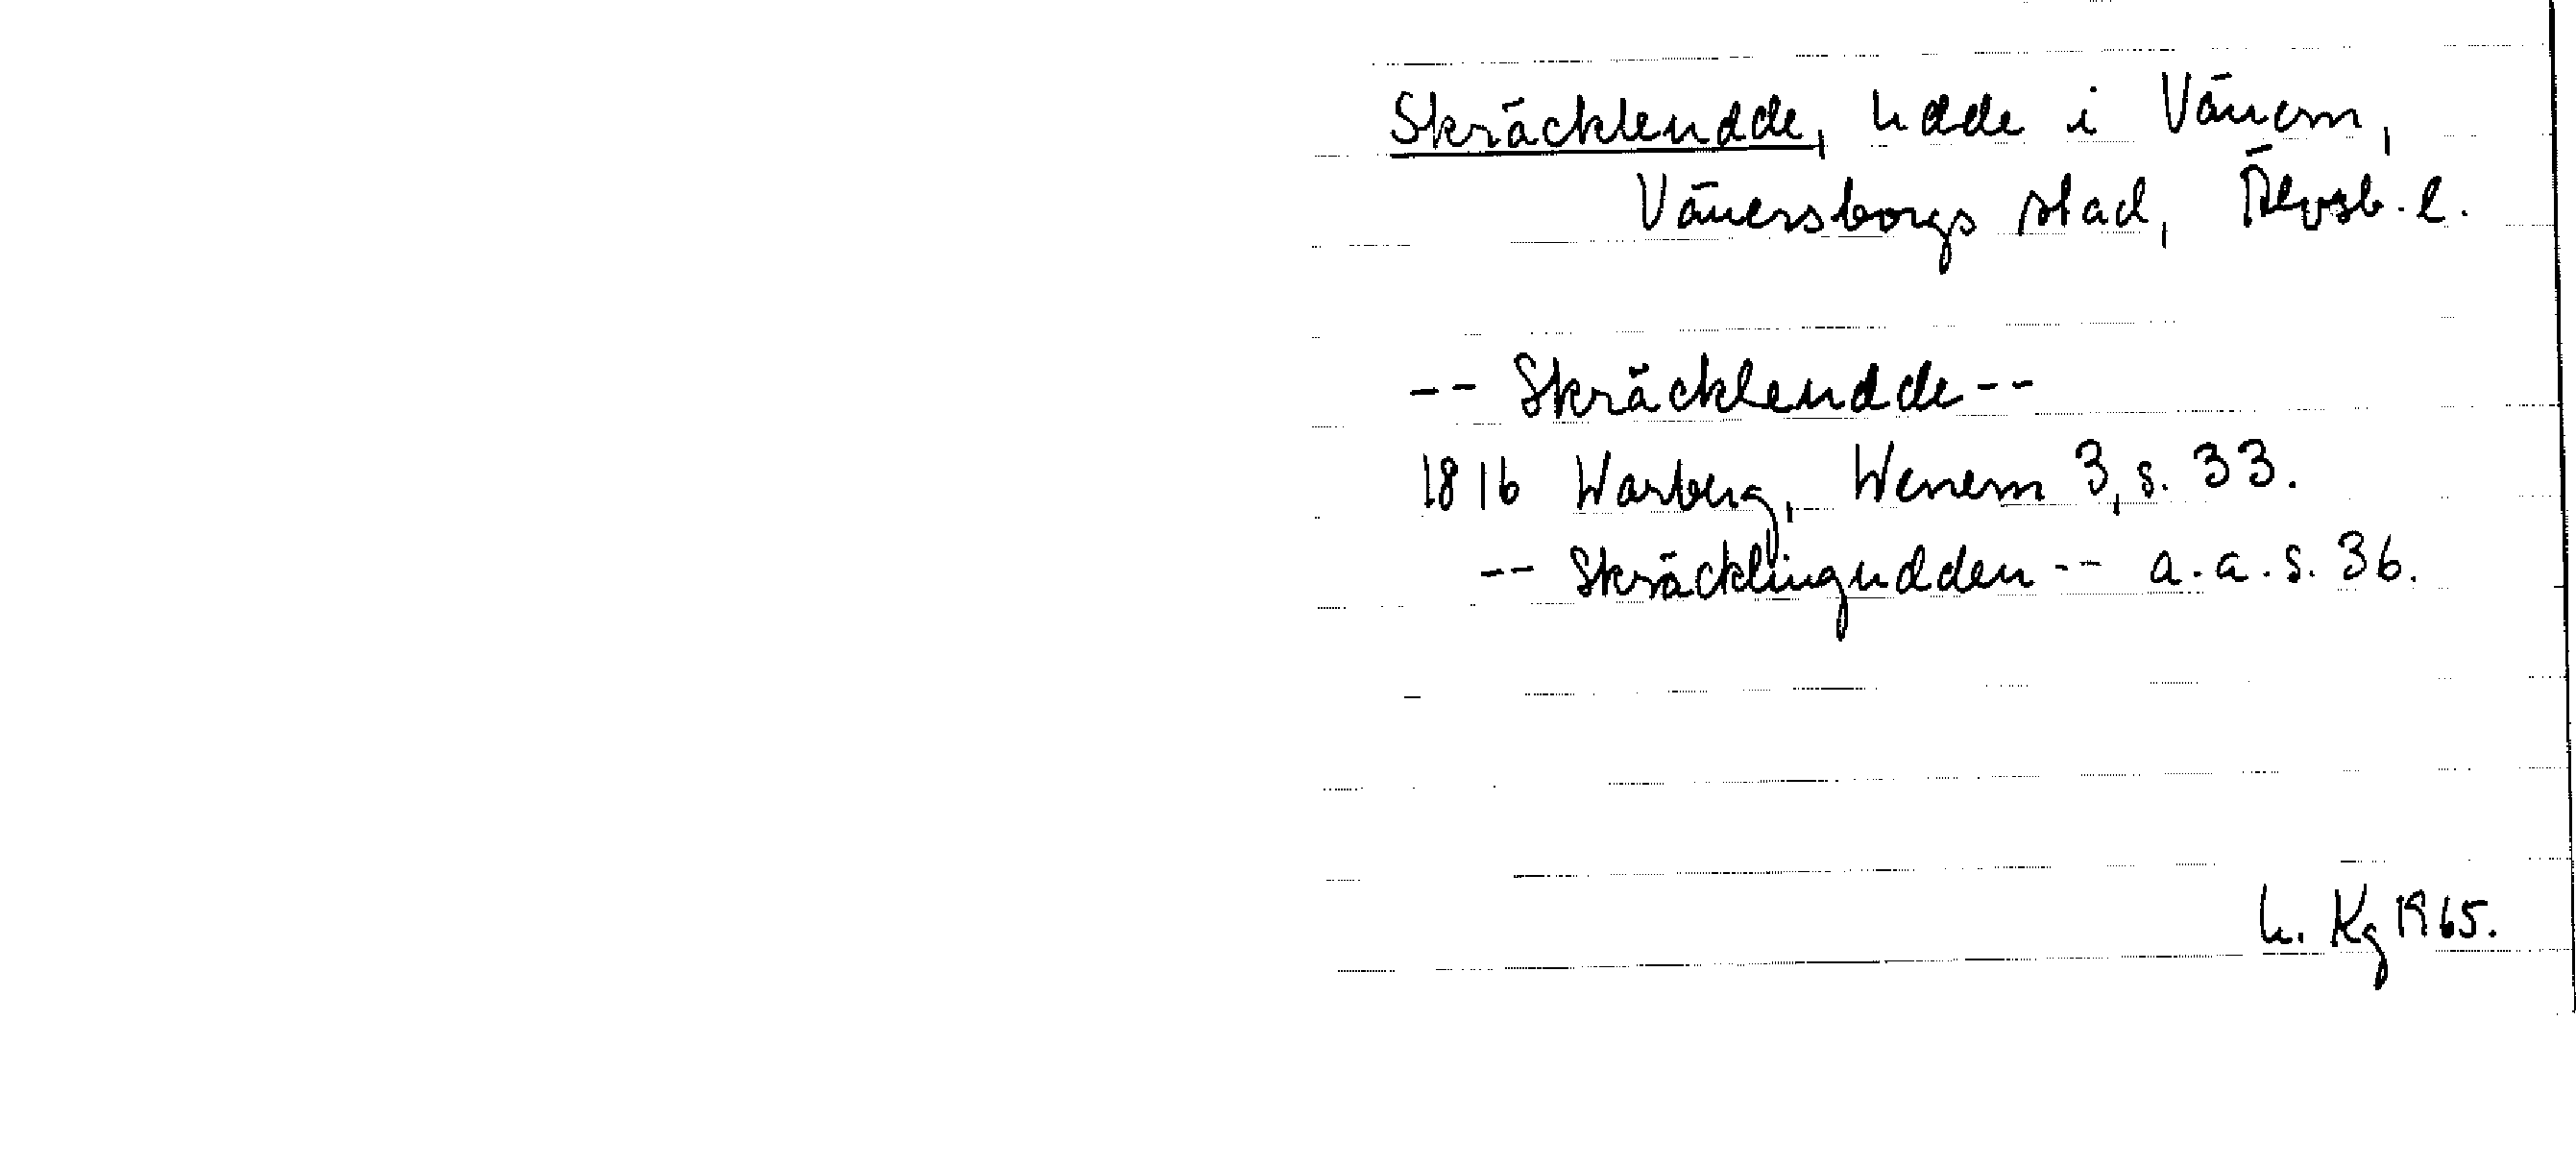 Skräckleudde, udde i Vänern,
Vänersborgs stad, Älvsb. l.
-- Skräckleudde --
1816 Warberg, Wenern 3, s. 33.
-- Skräcklingudden -- a. a. s. 36.
U. Kg 1965.